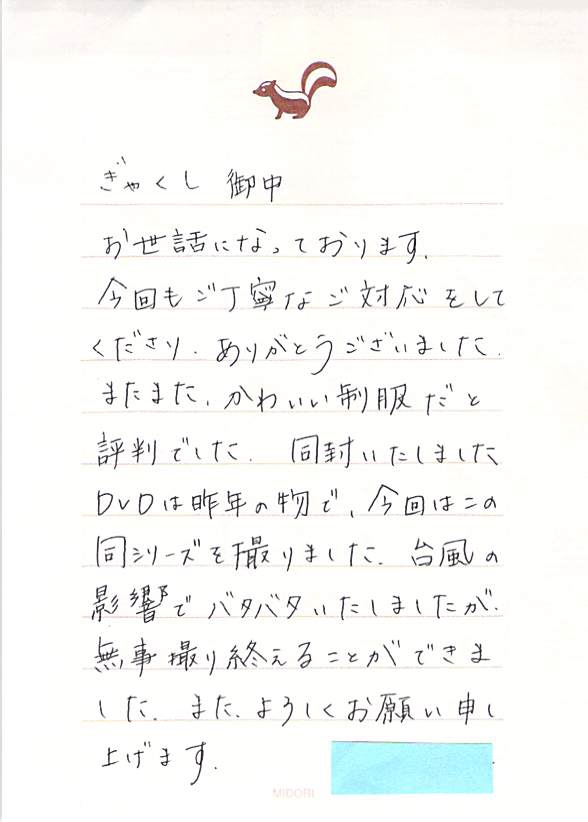 ぎゃくし 御中
お世話になっております.
今回もご丁寧なご対応をして
くださり、ありがとうございました.
またまた、かわいい制服だと
評判でした. 同封いたしました
DVDは昨年の物で、今回はこの
同シリーズを撮りました. 台風の
影響でバタバタいたしましたが、
無事撮り終えることができま
した. また、よろしくお願い申し
上げます.
MIDORI